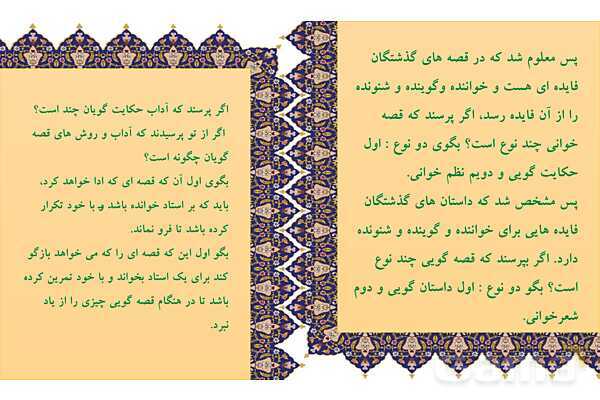 پس معلوم شد که در قصه های گذشتگان
فایده ای هست و خواننده وگوینده و شنونده
را از آن فایده رسد، اگر پرسند که قصه
خوانی چند نوع است؟ بگوی دو نوع : اول
حکایت گویی و دویم نظم خوانی.
پس مشخص شد که داستان های گذشتگان
فایده هایی برای خواننده و گوینده و شنونده
دارد. اگر بپرسند که قصه گویی چند نوع
است؟ بگو دو نوع : اول داستان گویی و دوم
شعرخوانی.
اگر پرسند که آداب حکایت گویان چند است؟
اگر از تو پرسیدند که آداب و روش های قصه
گویان چگونه است؟
بگوی اول آن که قصه ای که ادا خواهد کرد،
باید که بر استاد خوانده باشد و با خود تکرار
کرده باشد تا فرو نماند.
بگو اول این که قصه ای را که می خواهد بازگو
کند برای یک استاد بخواند و با خود تمرین کرده
باشد تا در هنگام قصه گویی چیزی را از یاد
نبرد.